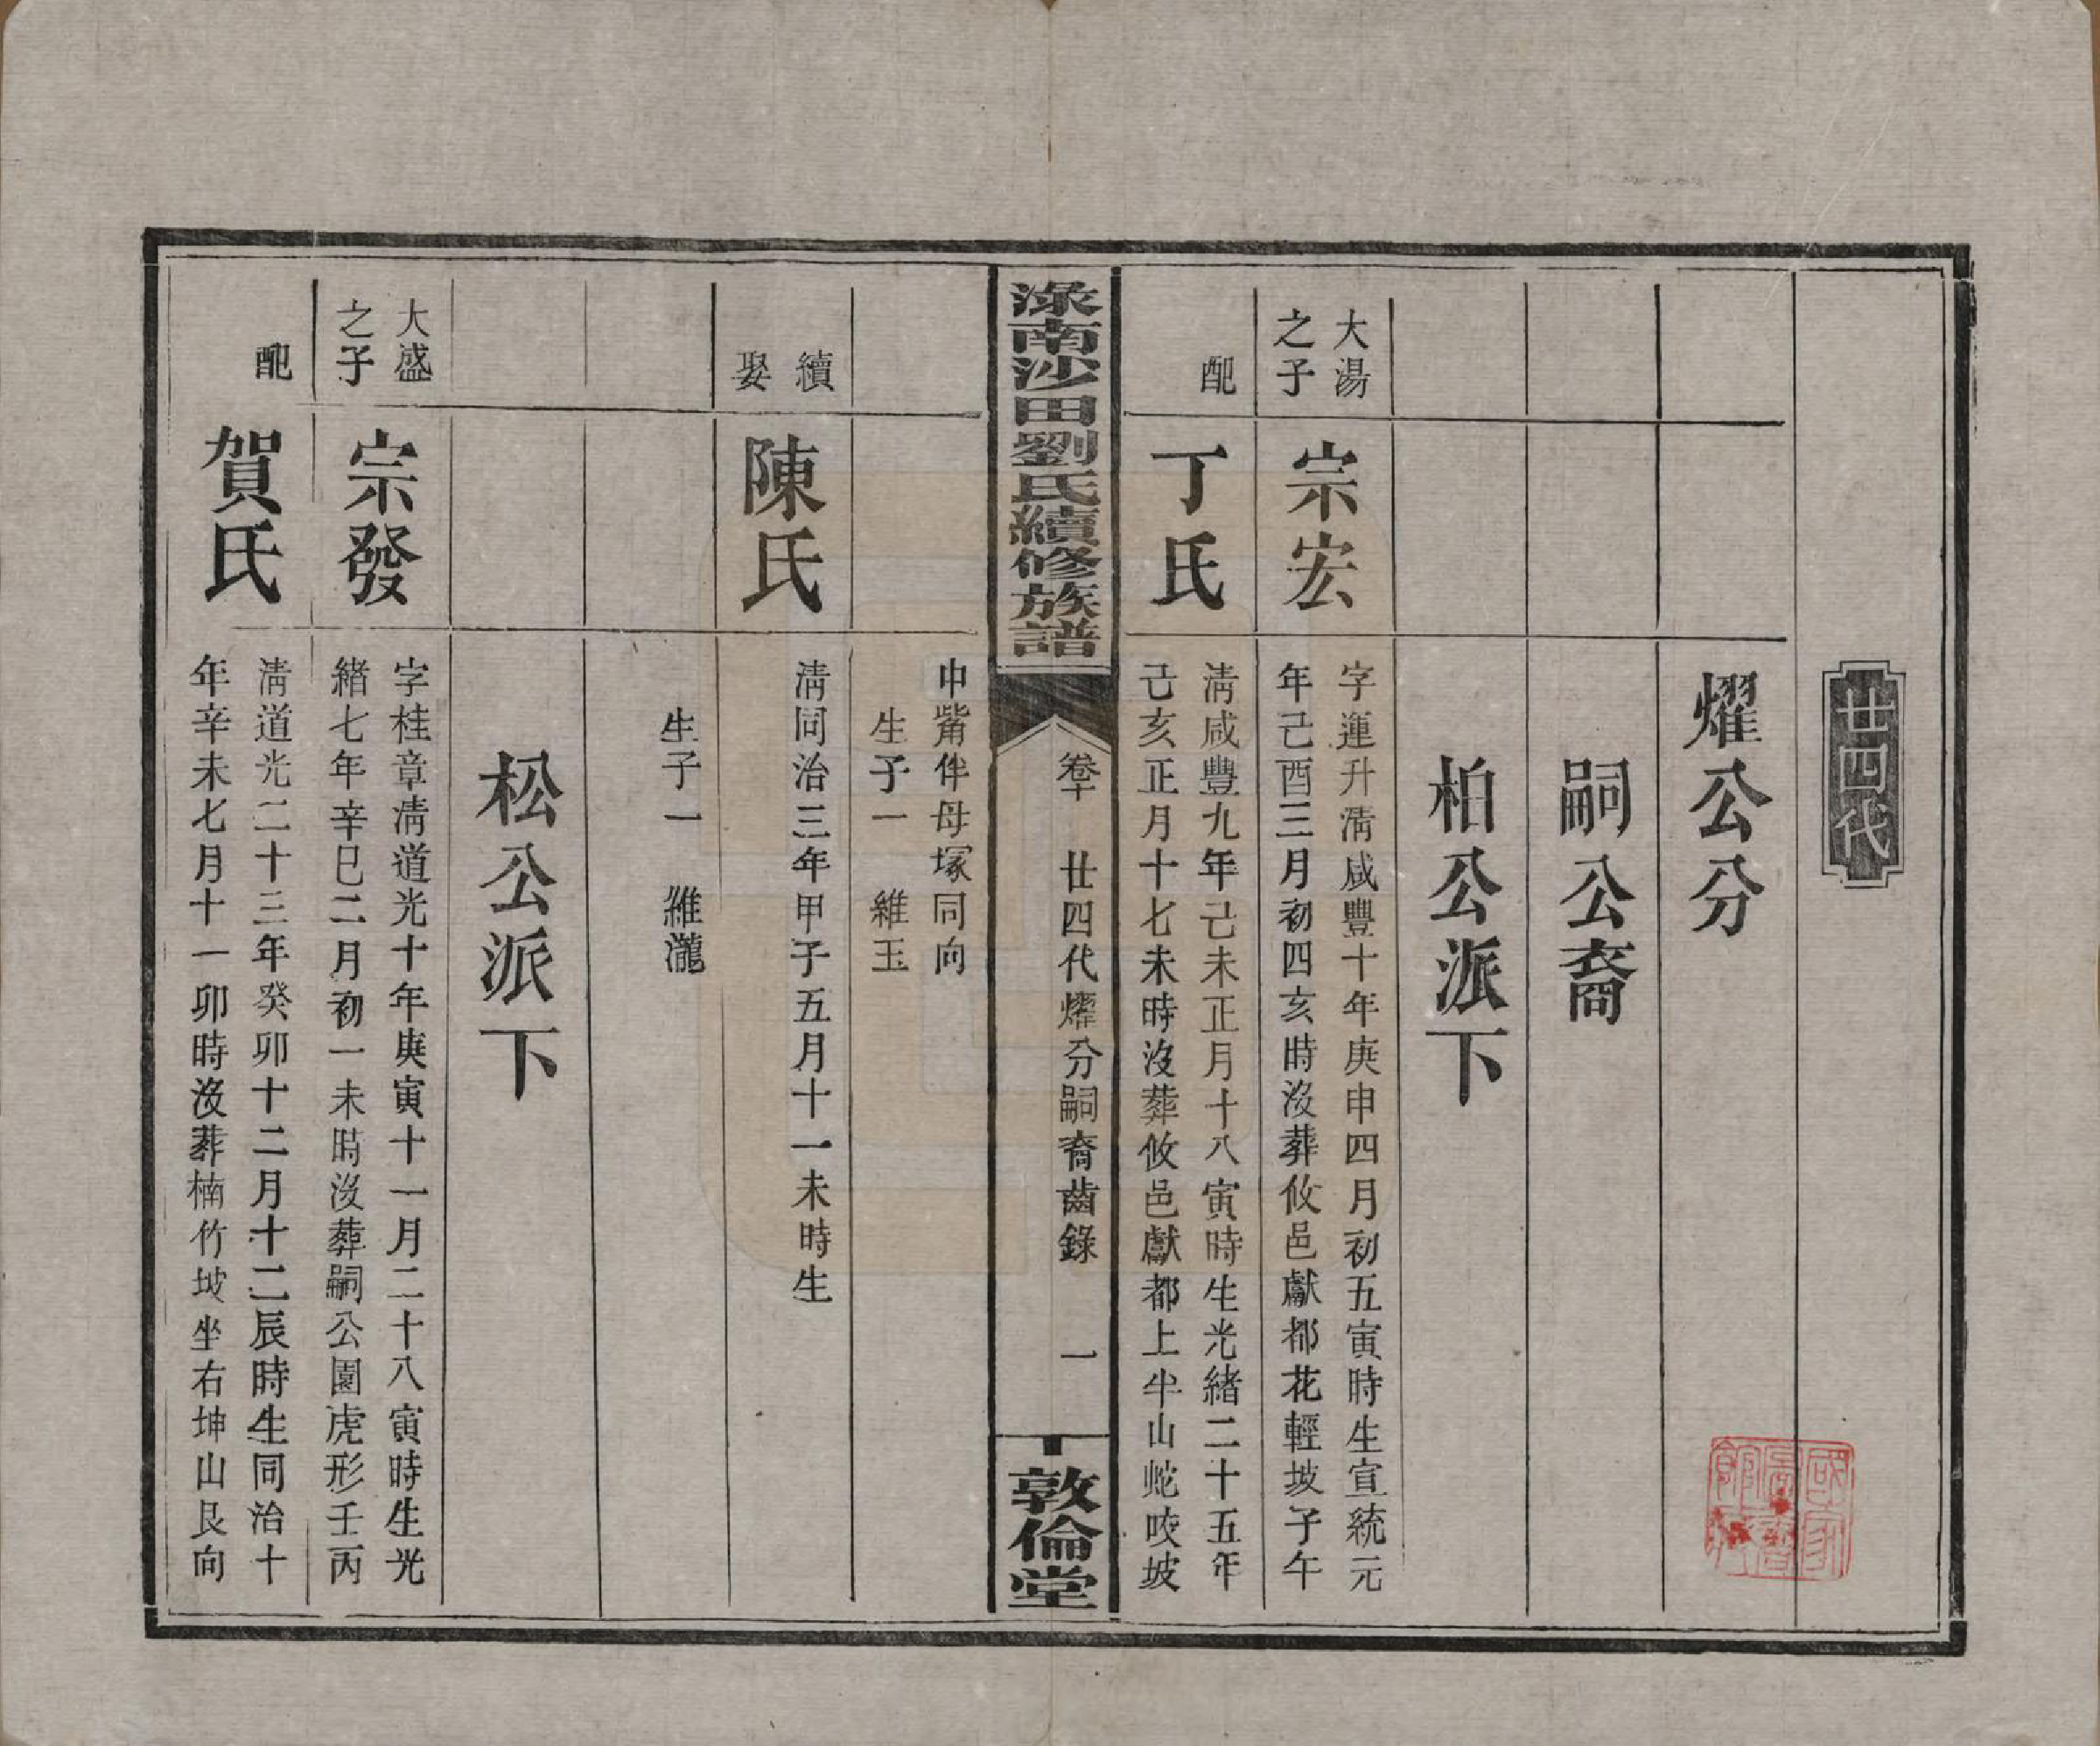 廿四代
燿公分
嗣公裔
柏公派下
大湯
之子
宗宏
字運升淸咸豐十年庚申四月初五寅時生宣統元
年己酉三月初四亥時沒葬攸邑獻都花輕坡子午
配
丁氏
淸咸豐九年己未正月十八寅時生光緒二十五年
己亥正月十七未時沒葬攸邑獻都上半山蛇咬坡
淥南沙田劉氏續修族譜
卷十
廿四代燿分嗣裔齒錄
一
敦倫堂
申觜伴母塚同向
生子一 維玉
續
娶
陳氏
淸同治三年甲子五月十一未時生
生子一 維瀧
松公派下
大盛
之子
宗發
字桂章淸道光十年庚寅十一月二十八寅時生光
緒七年辛巳二月初一未時沒葬嗣公園虎形壬丙
配
賀氏
淸道光二十三年癸卯十二月十二辰時生同治十
年辛未七月十一卯時沒葬楠竹坡坐右坤山艮向